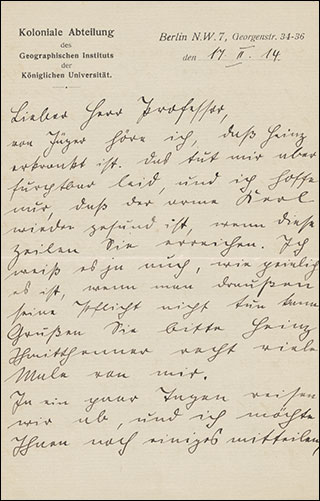 Koloniale Abteilung
des
Geographischen Instituts
der
Königlichen Universität.
Berlin N.W. 7, Georgenstr. 34-36
den 17 II. 14
Lieber Herr Professor,
von Jäger höre ich, daß Heinz
erkrankt ist. Das tut mir aber
furchtbar leid, und ich hoffe
nur, daß der arme Kerl
wieder gesund ist, wenn diese
Zeilen Sie erreichen. Ich
weiß es ja auch, wie peinlich
es ist, wenn man draußen
seine Pflicht nicht tun kann
Grüßen Sie bitte Heinz
Schmitthenner recht viele
Male von mir.
In ein paar Tagen reisen
wir ab, und ich möchte
Ihnen noch einiges mitteilen,